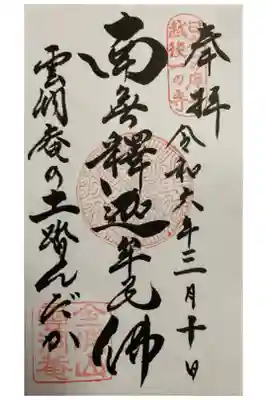 奉拝
令和六年三月十日
越後一の寺
南無釋迦牟尼佛
雲洞庵の土踏んだか
金城山
雲洞庵